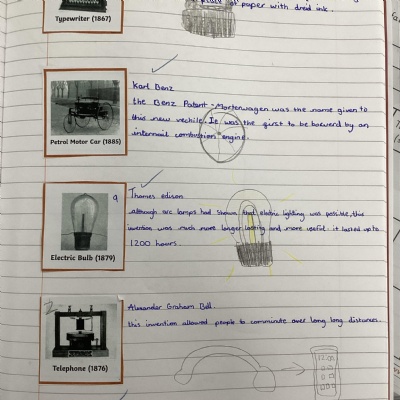 of paper with dried ink.
Typewriter (1867)
Karl Benz
the Benz Patent-Mortorwagen was the name given to
this new vechile. It was the first to be powerd by an
internail combustion engine.
Petrol Motor Car (1885)
9
Thomas edison
although arc lamps had shown that electric lighting was possible, this
invention was much more longer lasting and more useful. it lasted up to
1200 hours.
Electric Bulb (1879)
Alexander Graham Bell
this invention allowed people to comminute over long long distances.
Telephone (1876)